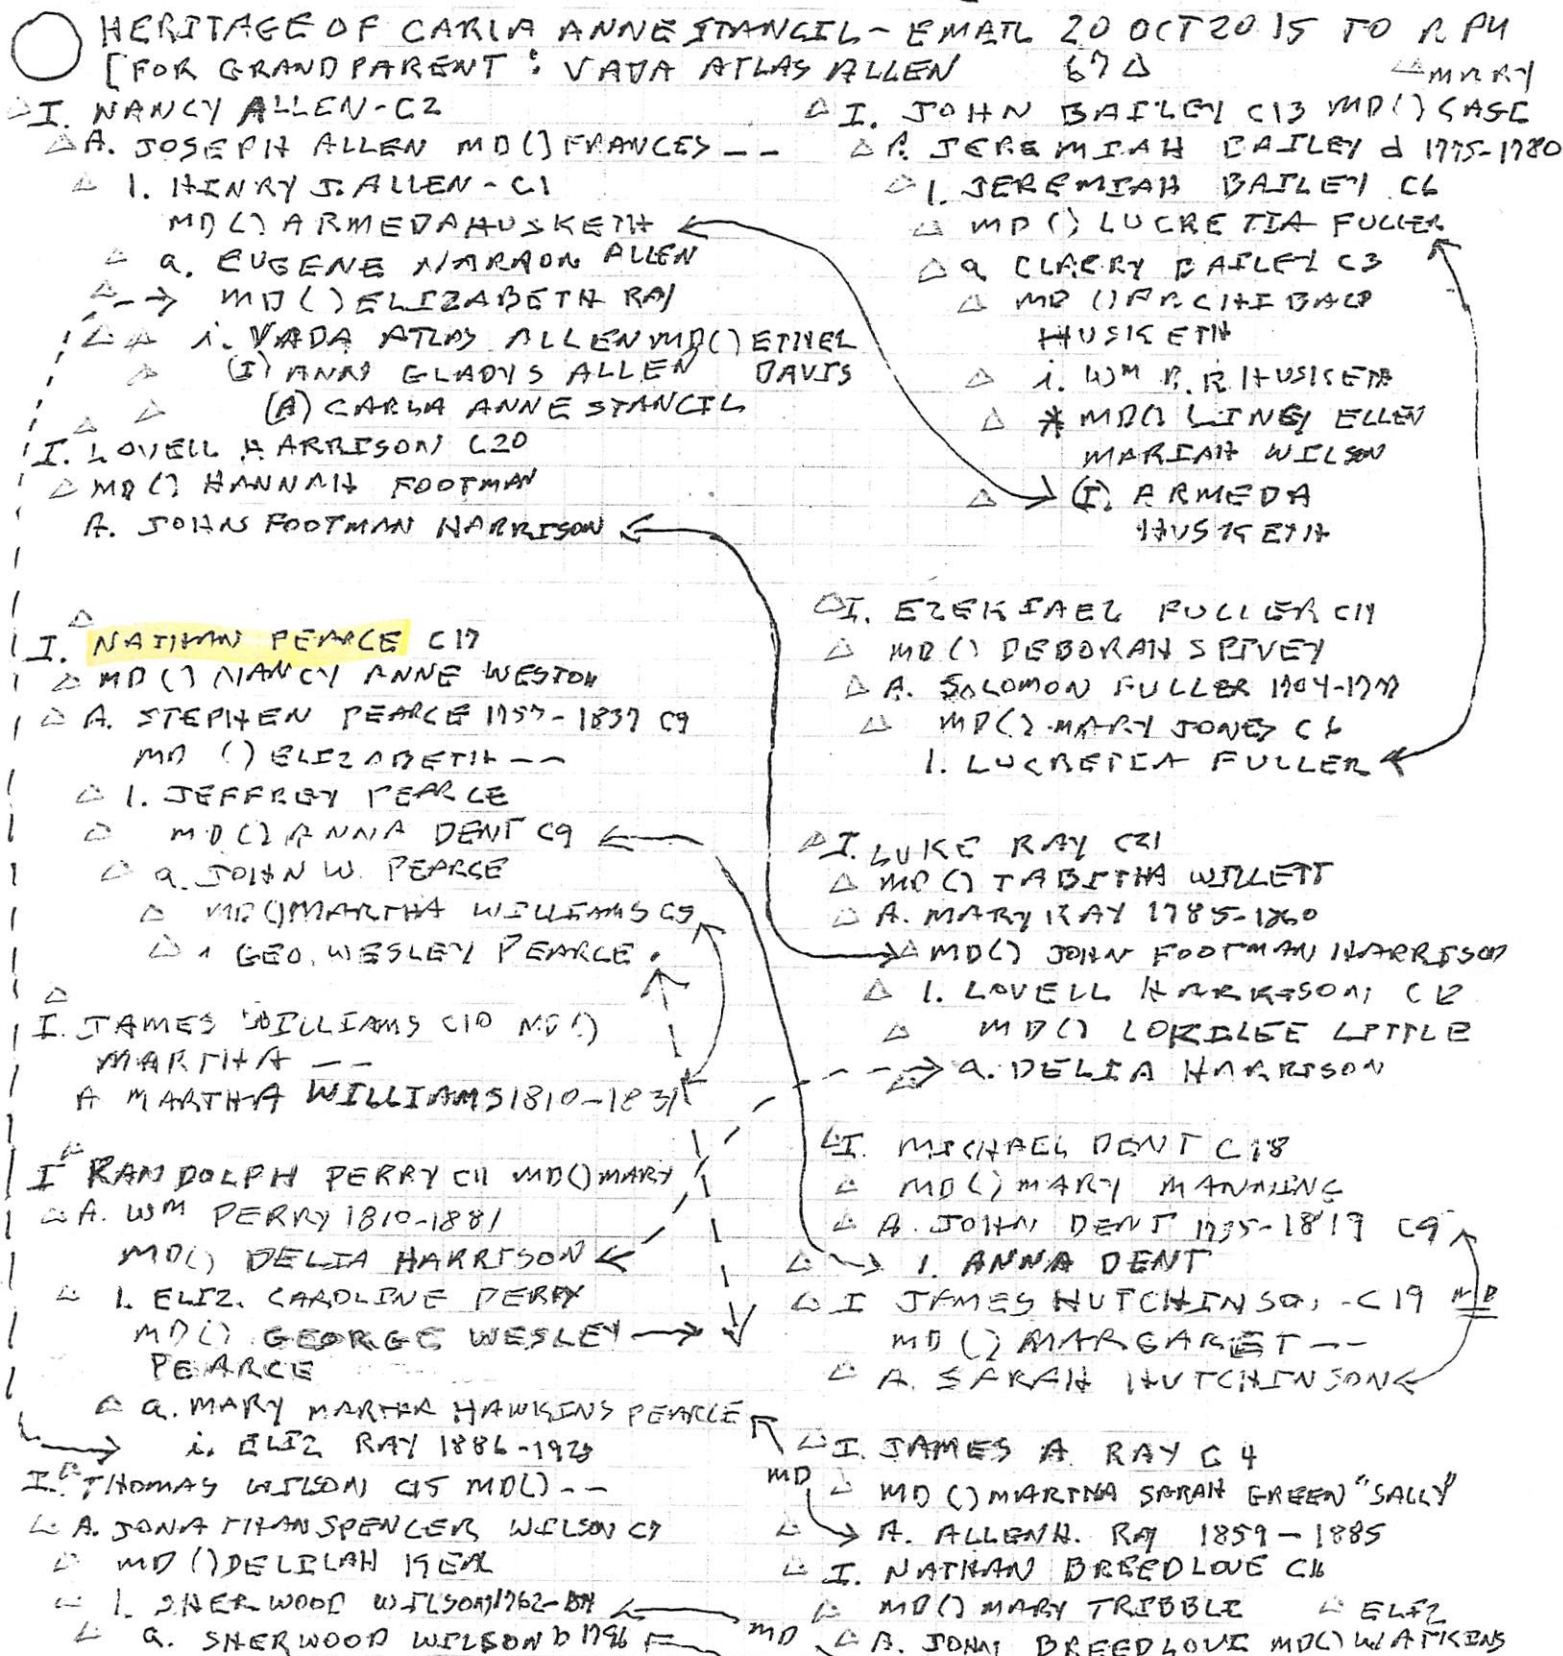 HERITAGE OF CARLA ANNE STANCIL - EMAIL 20 OCT 2015 TO RPH
[FOR GRANDPARENT: VADA ATLAS ALLEN 67 Δ
I. NANCY ALLEN - C2
A. JOSEPH ALLEN MD() FRANCES --
1. HENRY J. ALLEN - C1
MD() ARMEDA HUSKETH
a. EUGENE NARRON ALLEN
MD() ELIZABETH RAY
i. VADA ATLAS ALLEN MD() ETHEL DAVIS
(I) ANN GLADYS ALLEN
(A) CARLA ANNE STANCIL
I. LOVELL HARRISON C20
MD() HANNAH FOOTMAN
A. JOHN FOOTMAN HARRISON
I. NATHAN PEARCE C17
MD() NANCY ANNE WESTON
A. STEPHEN PEARCE 1757-1837 C9
MD () ELIZABETH --
1. JEFFREY PEARCE
MD() ANNA DENT C9
a. JOHN W. PEARCE
MD() MARTHA WILLIAMS C9
i GEO. WESLEY PEARCE
I. JAMES WILLIAMS C10 MD()
MARTHA --
A MARTHA WILLIAMS 1810-1831
I RANDOLPH PERRY C11 MD() MARY
A. WM PERRY 1810-1881
MD() DELIA HARRISON
1. ELIZ. CAROLINE PERRY
MD() GEORGE WESLEY
PEARCE
a. MARY MARTHA HAWKINS PEARCE
i. ELIZ RAY 1886-1928
I. THOMAS WILSON C15 MD() --
A. JONATHAN SPENCER WILSON C7
MD () DELILAH KEAL
1. SHERWOOD WILSON 1762-
a. SHERWOOD WILSON b 1786
MARY
I. JOHN BAILEY C13 MD() CAGE
A. JEREMIAH BAILEY d 1775-1780
1. JEREMIAH BAILEY C6
MD () LUCRETIA FULLER
a CLARRY BAILEY C3
MD () ARCHIBALD
HUSKETH
i. WM P. R HUSKETH
* MD() LINEY ELLEN
MARIAH WILSON
(I) ARMEDA
HUSKETH
I. EZEKIAEL FULLER C14
MD () DEBORAH SPIVEY
A. SOLOMON FULLER 1704-
MD() MARY JONES C6
1. LUCRETIA FULLER
I. LUKE RAY C21
MD () TABITHA WILLETT
A. MARY RAY 1785-1860
MD() JOHN FOOTMAN HARRISON
1. LOVELL HARRISON, C12
MD () LORILEE LITTLE
a. DELIA HARRISON
I. MICHAEL DENT C18
MD() MARY MANNING
A. JOHN DENT 1735-1819 C9
1. ANNA DENT
I JAMES HUTCHINSON - C19 MD
MD () MARGARET --
A. SARAH HUTCHINSON
I. JAMES A. RAY C4
MD
MD () MARTHA SARAH GREEN "SALLY"
A. ALLEN H. RAY 1859-1885
I. NATHAN BREEDLOVE C16
MD() MARY TRIBBLE
MD
A. JOHN BREEDLOVE MD() ELIZ WATKINS